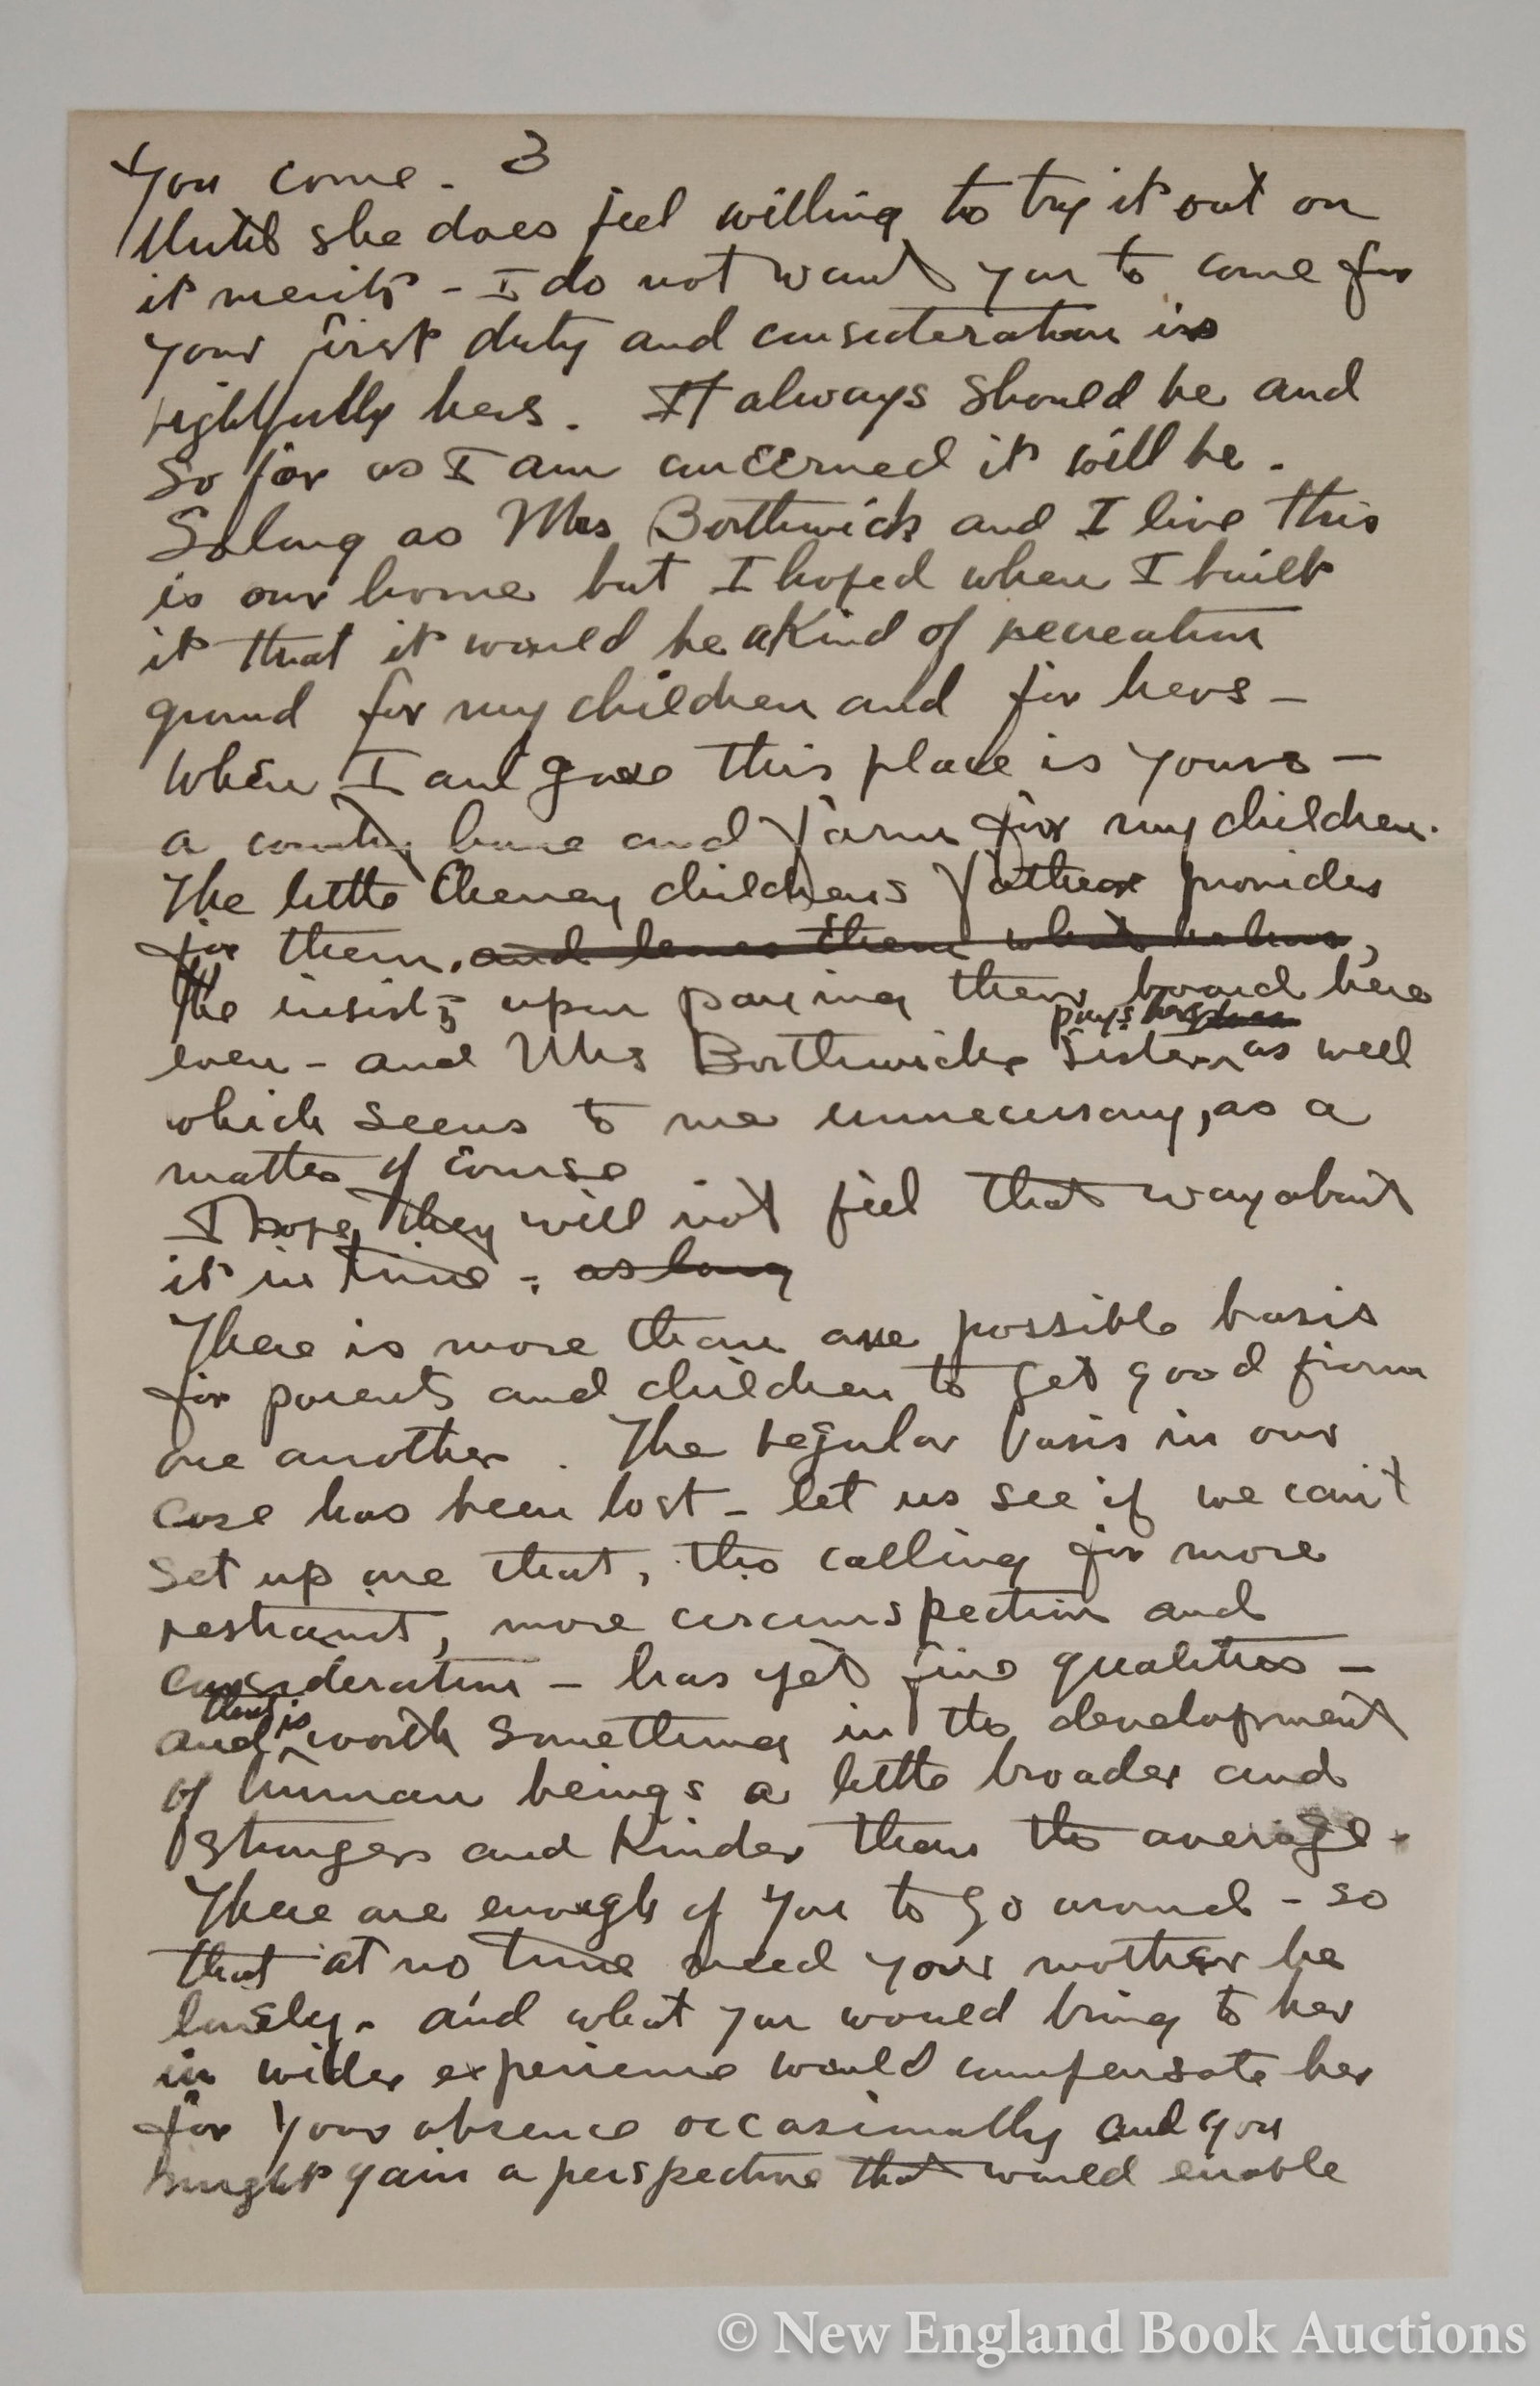 You come. 3
Until she does feel willing to try it out on
it merits - I do not want you to come for
your first duty and consideration is
rightfully hers. It always should be and
so far as I am concerned it will be.
So long as Mrs Borthwick and I live this
is our home but I hoped when I built
it that it would be a kind of recreation
ground for my children and for hers -
When I am gone this place is yours -
a country home and farm for my children.
The little Cheney childrens father provides
for them. and leaves them what he has,
He insists upon paying their board here
pays her
even - and Mrs Borthwicks sister as well
which seems to me unnecessary, as a
matter of course
I hope they will not feel that way about
it in time - as long
There is more than one possible basis
for parents and children to get good from
one another. The regular basis in our
case has been lost - let us see if we can't
set up one that, tho calling for more
restraint, more circumspection and
consideration - has yet fine qualities -
that is
and worth something in the development
of human beings a little broader and
stronger and kinder than the average.
There are enough of you to go around - so
that at no time need your mother be
lonely. and what you would bring to her
in wider experience would compensate her
for your absence occasionally and you
might gain a perspective that would enable
© New England Book Auctions